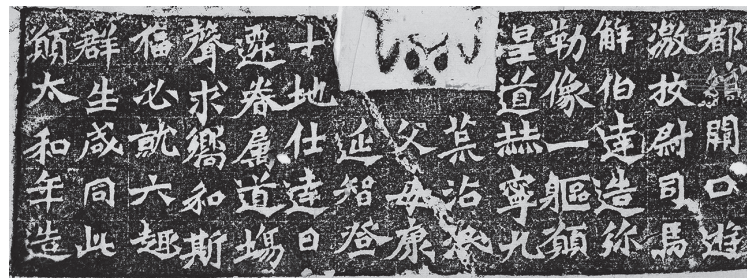 都綰開口遊
激挍尉司馬
解伯達造弥
勒像一軀願
皇道赫寧九
荒沾澤
父母康
延智登
十地仕達日
遷眷屬道場
聲求嚮和斯
福必就六趣
群生咸同此
願太和年造